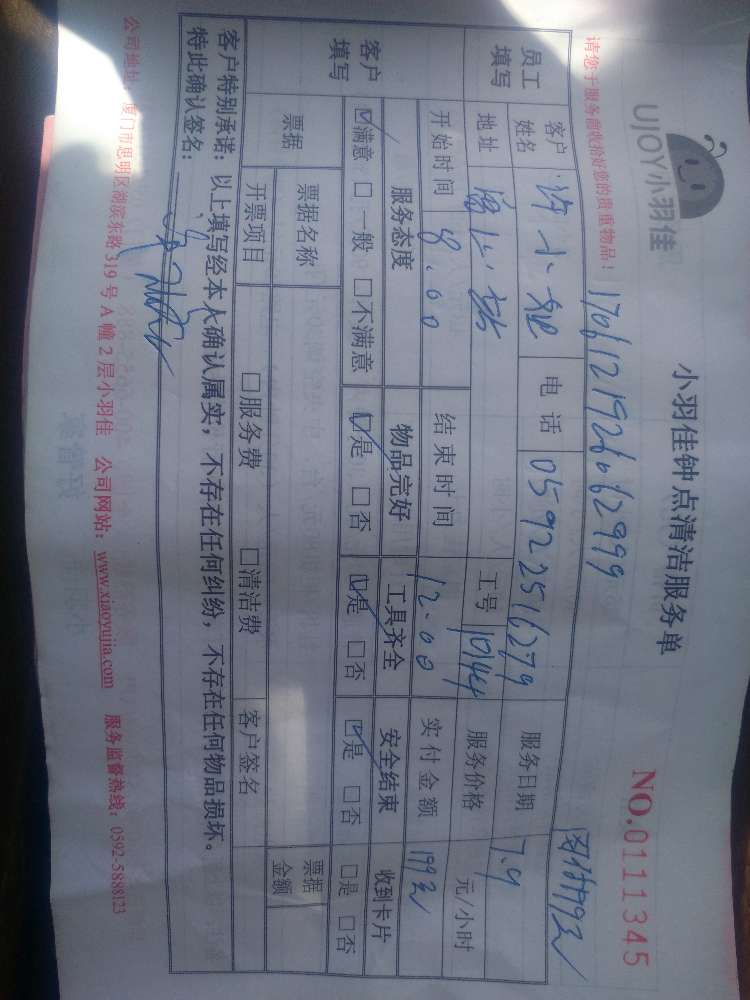 UJOY小羽佳
小羽佳钟点清洁服务单
NO.0111345
请您于服务前收拾好您的贵重物品！
1706121926062999
员工填写
客户姓名 许小姐 电话 05922516279 服务日期 7.9
地址 工号 10144 服务价格 元/小时
开始时间 8.00 结束时间 12.00 实付金额 199元
客户填写
服务态度 物品完好 工具齐全 安全结束 收到卡片
☑满意 □一般 □不满意 ☑是 □否 ☑是 □否 ☑是 □否 □是 □否
票据 票据名称 票据金额
开票项目 □服务费 □清洁费 客户签名
客户特别承诺：以上填写经本人确认属实，不存在任何纠纷，不存在任何物品损坏。
特此确认签名：
公司地址：厦门市思明区湖滨东路319号A幢2层小羽佳 公司网站：www.xiaoyujia.com 服务监督热线：0592-5888123